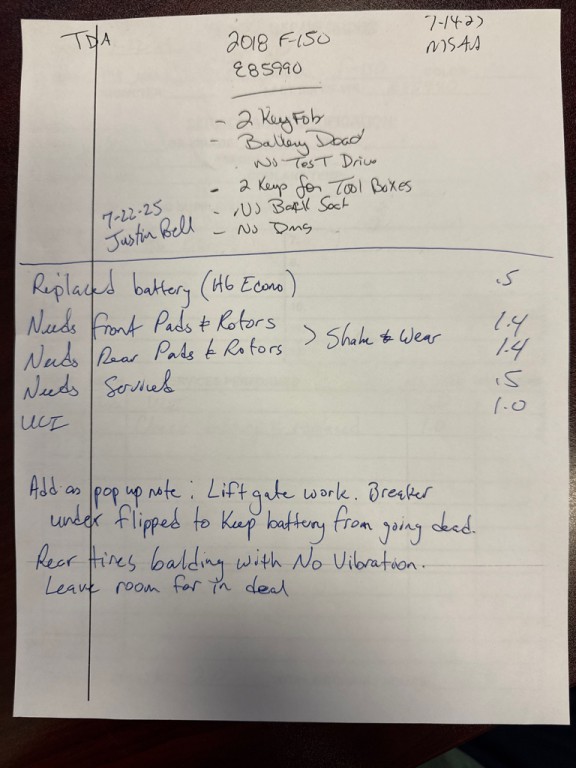 TDA
2018 F-150
E85990
7-14-25
- 2 Key Fob
- Battery Dead
No Test Drive
- 2 Keys for Tool Boxes
- No Back Seat
- No Dmg
7-22-25
Justin Bell
Replaced battery (H6 Econo) .5
Needs Front Pads & Rotors 1.4
> Shake & Wear
Needs Rear Pads & Rotors 1.4
Needs Serviced .5
UCI 1.0
Add as pop up note: Lift gate work. Breaker
under flipped to Keep battery from going dead.
Rear tires balding with No Vibration.
Leave room for in deal